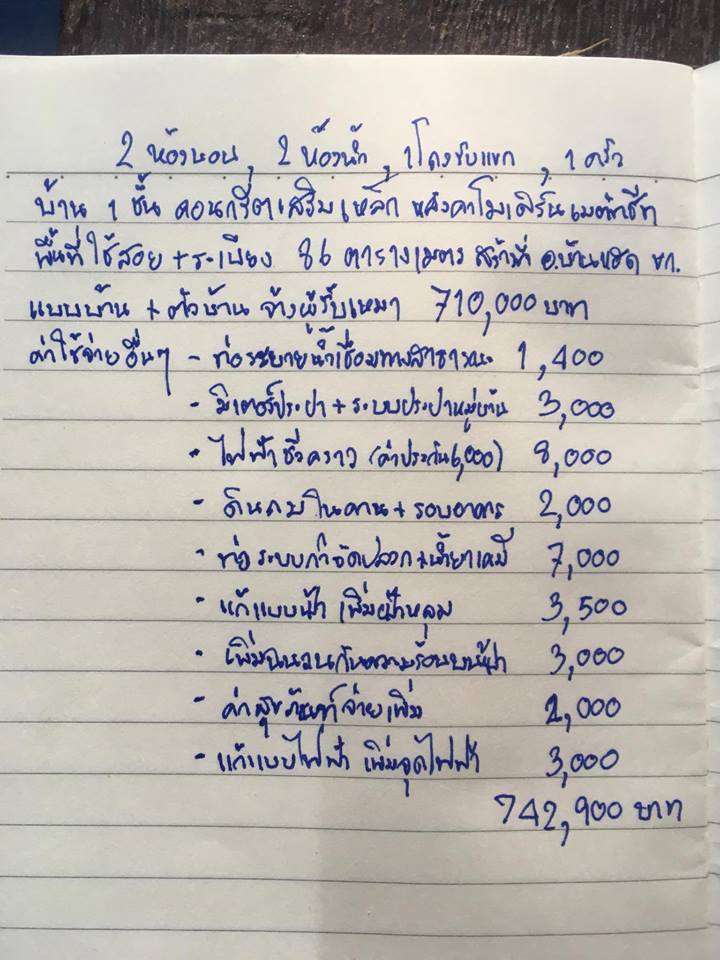 2 ห้องนอน, 2 ห้องน้ำ, 1 โถงรับแขก, 1 ครัว
บ้าน 1 ชั้น คอนกรีตเสริมเหล็ก หลังคาโมเดิร์นเมทัลชีท
พื้นที่ใช้สอย + ระเบียง 86 ตารางเมตร สร้างที่ อ.บ้านแฮด ขก.
แบบบ้าน + ตัวบ้าน จ้างผู้รับเหมา 710,000 บาท
ค่าใช้จ่ายอื่นๆ - ท่อระบายน้ำเชื่อมทางสาธารณะ 1,400
- มิเตอร์ประปา + ระบบประปาหมู่บ้าน 3,000
- ไฟฟ้าชั่วคราว (ค่าประกัน 6,000) 8,000
- ดินถมในคาน + รอบอาคาร 2,000
- ท่อระบบกำจัดปลวก + น้ำยาเคมี 7,000
- แก้แบบฝ้า เพิ่มฝ้าหลุม 3,500
- เพิ่มฉนวนกันความร้อนบนฝ้า 3,000
- ค่าสุขภัณฑ์จ่ายเพิ่ม 2,000
- แก้แบบไฟฟ้า เพิ่มจุดไฟฟ้า 3,000
742,900 บาท